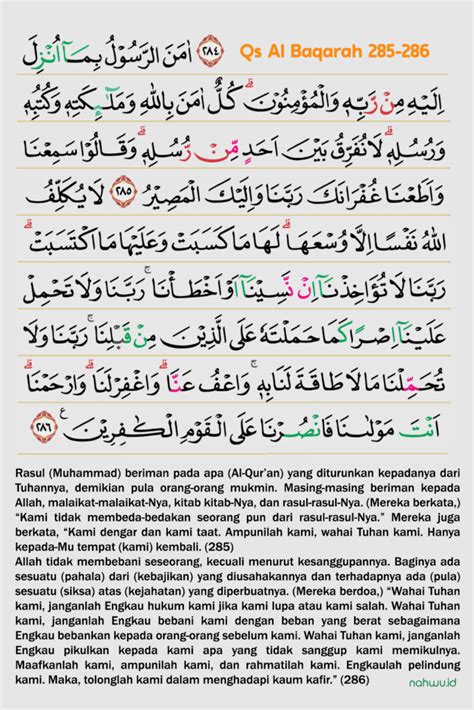 Qs Al Baqarah 285-286
٢٨٤ اٰمَنَ الرَّسُوْلُ بِمَآ اُنْزِلَ
اِلَيْهِ مِنْ رَّبِّهٖ وَالْمُؤْمِنُوْنَۗ كُلٌّ اٰمَنَ بِاللّٰهِ وَمَلٰۤىِٕكَتِهٖ وَكُتُبِهٖ
وَرُسُلِهٖۗ لَا نُفَرِّقُ بَيْنَ اَحَدٍ مِّنْ رُّسُلِهٖۗ وَقَالُوْا سَمِعْنَا
وَاَطَعْنَا غُفْرَانَكَ رَبَّنَا وَاِلَيْكَ الْمَصِيْرُ ٢٨٥ لَا يُكَلِّفُ
اللّٰهُ نَفْسًا اِلَّا وُسْعَهَاۗ لَهَا مَا كَسَبَتْ وَعَلَيْهَا مَا اكْتَسَبَتْۗ
رَبَّنَا لَا تُؤَاخِذْنَآ اِنْ نَّسِيْنَآ اَوْ اَخْطَأْنَاۚ رَبَّنَا وَلَا تَحْمِلْ
عَلَيْنَآ اِصْرًا كَمَا حَمَلْتَهٗ عَلَى الَّذِيْنَ مِنْ قَبْلِنَاۚ رَبَّنَا وَلَا
تُحَمِّلْنَا مَا لَا طَاقَةَ لَنَا بِهٖۚ وَاعْفُ عَنَّاۗ وَاغْفِرْ لَنَاۗ وَارْحَمْنَاۗ
اَنْتَ مَوْلٰىنَا فَانْصُرْنَا عَلَى الْقَوْمِ الْكٰفِرِيْنَ ࣖ ٢٨٦
Rasul (Muhammad) beriman pada apa (Al-Qur'an) yang diturunkan kepadanya dari
Tuhannya, demikian pula orang-orang mukmin. Masing-masing beriman kepada
Allah, malaikat-malaikat-Nya, kitab kitab-Nya, dan rasul-rasul-Nya. (Mereka berkata,)
“Kami tidak membeda-bedakan seorang pun dari rasul-rasul-Nya.” Mereka juga
berkata, “Kami dengar dan kami taat. Ampunilah kami, wahai Tuhan kami. Hanya
kepada-Mu tempat (kami) kembali. (285)
Allah tidak membebani seseorang, kecuali menurut kesanggupannya. Baginya ada
sesuatu (pahala) dari (kebajikan) yang diusahakannya dan terhadapnya ada (pula)
sesuatu (siksa) atas (kejahatan) yang diperbuatnya. (Mereka berdoa,) “Wahai Tuhan
kami, janganlah Engkau hukum kami jika kami lupa atau kami salah. Wahai Tuhan
kami, janganlah Engkau bebani kami dengan beban yang berat sebagaimana
Engkau bebankan kepada orang-orang sebelum kami. Wahai Tuhan kami, janganlah
Engkau pikulkan kepada kami apa yang tidak sanggup kami memikulnya.
Maafkanlah kami, ampunilah kami, dan rahmatilah kami. Engkaulah pelindung
kami. Maka, tolonglah kami dalam menghadapi kaum kafir.” (286)
nahwu.id